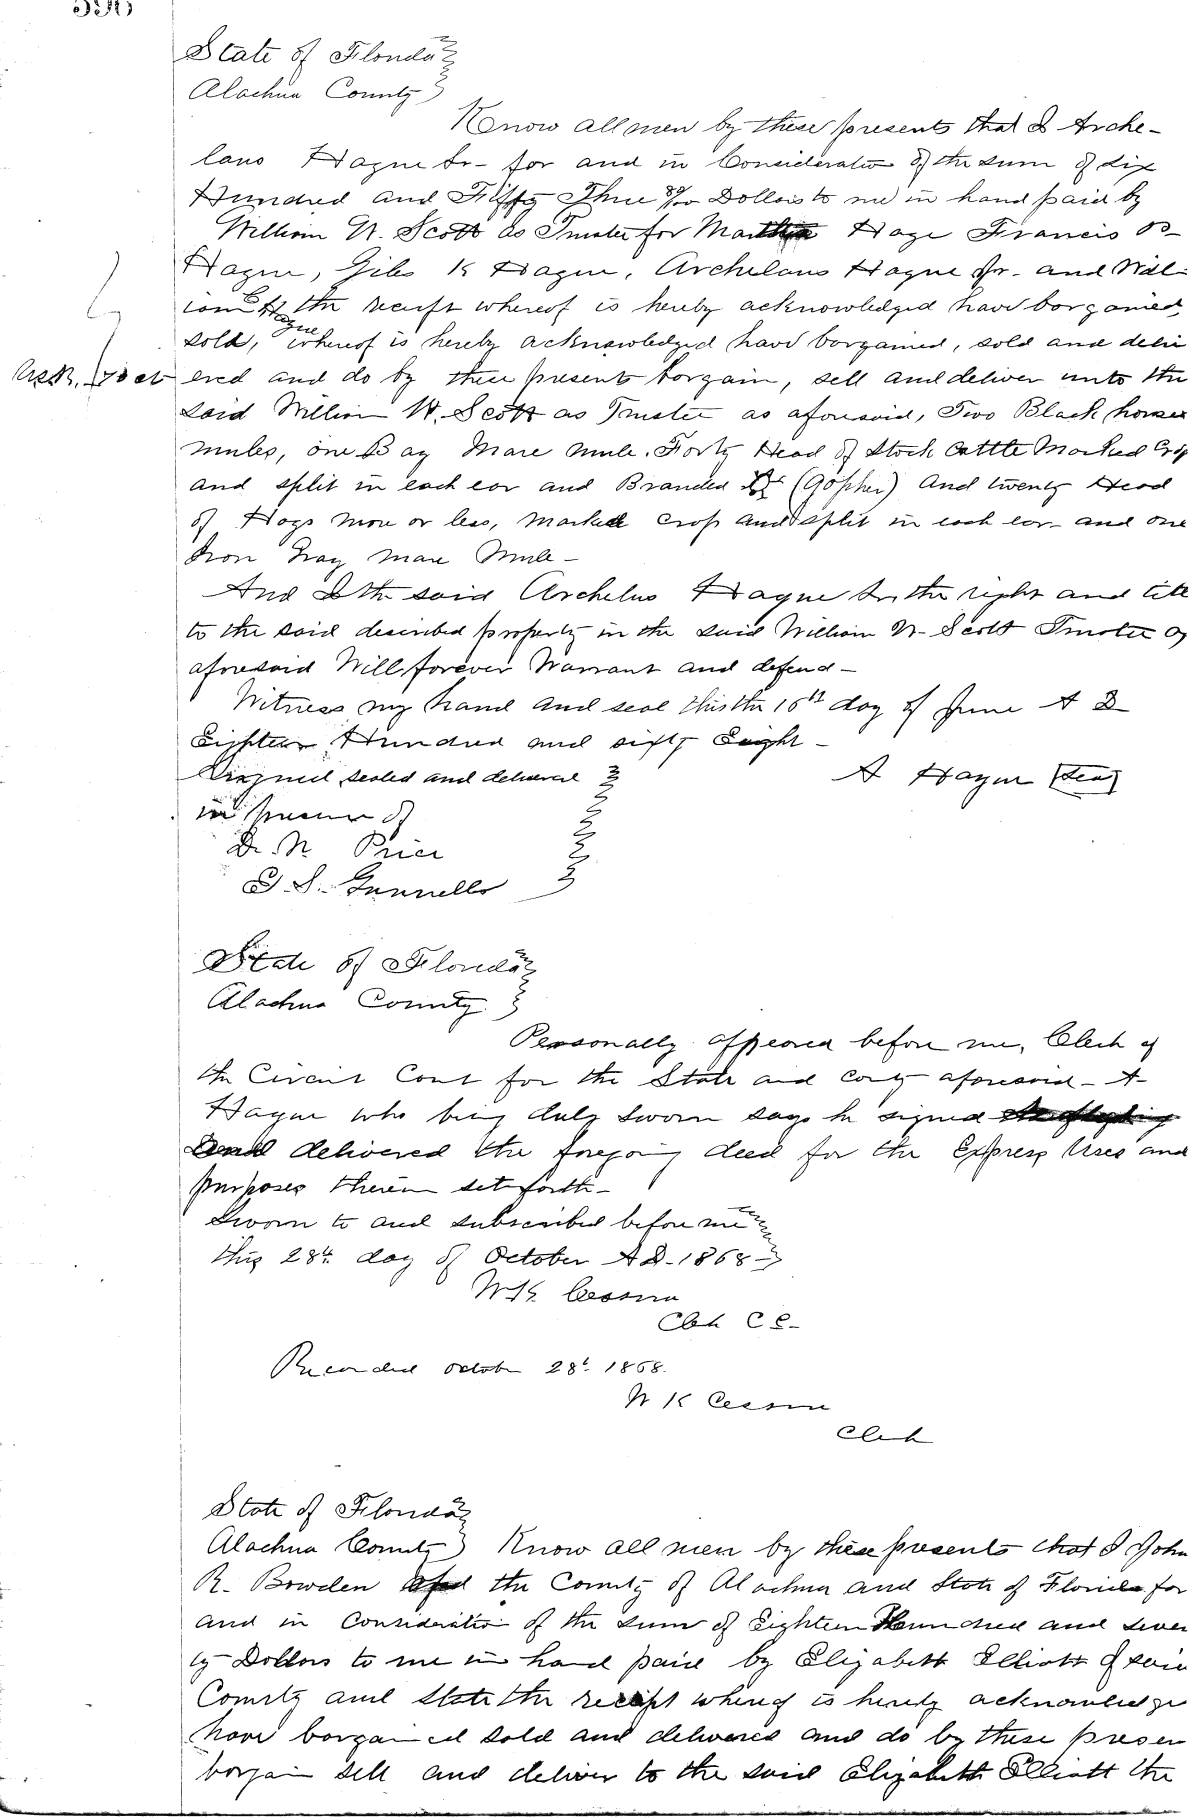 596
State of Florida
Alachua County
Know all men by these presents that I Arche-
laus Hague Sr- for and in Consideration of the sum of Six
Hundred and Fifty Three Dollars to me in hand paid by
William W. Scott as Trustee for Martha Hage Francis B-
Hague, Giles K Hague, Archelaus Hague Jr. and Will-
iam Hague the receipt whereof is hereby acknowledged have bargained,
sold, whereof is hereby acknowledged have bargained, sold and deliv
ered and do by these presents bargain, sell and deliver unto the
said William W. Scott as Trustee as aforesaid, Two Black horse
mules, one Bay Mare mule. Forty Head of Stock Cattle Marked Crop
and split in each ear and Branded (Gopher) And twenty Head
of Hogs more or less, marked crop and split in each ear- and one
Iron Gray mare Mule-
And I the said Archelus Hague Sr. the right and title
to the said described property in the said William W- Scott Trustee as
aforesaid Will forever Warrant and defend-
Witness my hand and seal this the 16th day of June A D
Eighteen Hundred and sixty Eight-
Signed, sealed and delivered
A Hague [Seal]
in presence of
D. N. Price
S. Gunnells
State of Florida
Alachua County
Personally appeared before me, Clerk of
the Circuit Court for the State and county aforesaid- A-
Hague who being duly sworn says he signed
and delivered the foregoing deed for the Express Uses and
purposes therein set forth-
Sworn to and subscribed before me
this 28th day of October A D. 1868-
W K. Cessna
Clerk C C-
Recorded October 28th 1868.
W K Cessna
Clerk
State of Florida
Alachua County Know all men by these presents that I John
R. Bowden of the County of Alachua and State of Florida for
and in Consideration of the sum of Eighteen Hundred and seven
ty Dollars to me in hand paid by Elizabeth Elliott of said
County and State the receipt whereof is hereby acknowledge
have bargained sold and delivered and do by these presen
bargain sell and deliver to the said Elizabeth Elliott the